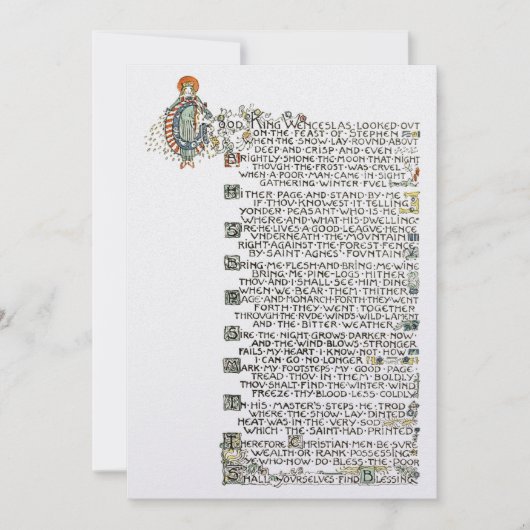 GOOD·KING WENCESLAS·LOOKED·OUT
ON·THE·FEAST·OF·STEPHEN
WHEN·THE·SNOW·LAY·ROUND·ABOUT
DEEP·AND·CRISP·AND·EVEN
BRIGHTLY·SHONE·THE·MOON·THAT·NIGHT
THOUGH·THE·FROST·WAS·CRVEL
WHEN·A·POOR·MAN·CAME·IN·SIGHT
GATHERING·WINTER·FVEL
HITHER·PAGE·AND·STAND·BY·ME
IF·THOV·KNOWEST·IT·TELLING
YONDER·PEASANT·WHO·IS·HE
WHERE·AND·WHAT·HIS·DWELLING·
SIRE·HE·LIVES·A·GOOD·LEAGVE·HENCE
VNDERNEATH·THE·MOVNTAIN
RIGHT·AGAINST·THE·FOREST·FENCE
BY·SAINT·AGNES'·FOVNTAIN
BRING·ME·FLESH·AND·BRING·ME·WINE
BRING·ME·PINE-LOGS·HITHER
THOV·AND·I·SHALL·SEE·HIM·DINE
WHEN·WE·BEAR·THEM·THITHER
PAGE·AND·MONARCH·FORTH·THEY·WENT
FORTH·THEY·WENT·TOGETHER
THROVGH·THE·RVDE·WINDS·WILD·LAMENT
AND·THE·BITTER·WEATHER
SIRE·THE·NIGHT·GROWS·DARKER·NOW
AND·THE·WIND·BLOWS·STRONGER
FAILS·MY·HEART·I·KNOW·NOT·HOW
I·CAN·GO·NO·LONGER
MARK·MY·FOOTSTEPS·MY·GOOD·PAGE·
TREAD·THOV·IN·THEM·BOLDLY
THOV·SHALT·FIND·THE·WINTER·WIND
FREEZE·THY·BLOOD·LESS·COLDLY
IN·HIS·MASTER'S·STEPS·HE·TROD
WHERE·THE·SNOW·LAY·DINTED
HEAT·WAS·IN·THE·VERY·SOD
WHICH·THE·SAINT·HAD·PRINTED
THEREFORE CHRISTIAN·MEN·BE·SVRE
WEALTH·OR·RANK·POSSESSING
YE·WHO·NOW·DO·BLESS·THE·POOR
SHALL YOVRSELVES·FIND BLESSING